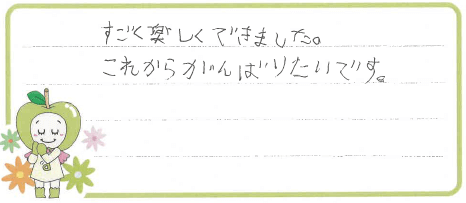 すごく楽しくできました。
これからがんばりたいです。